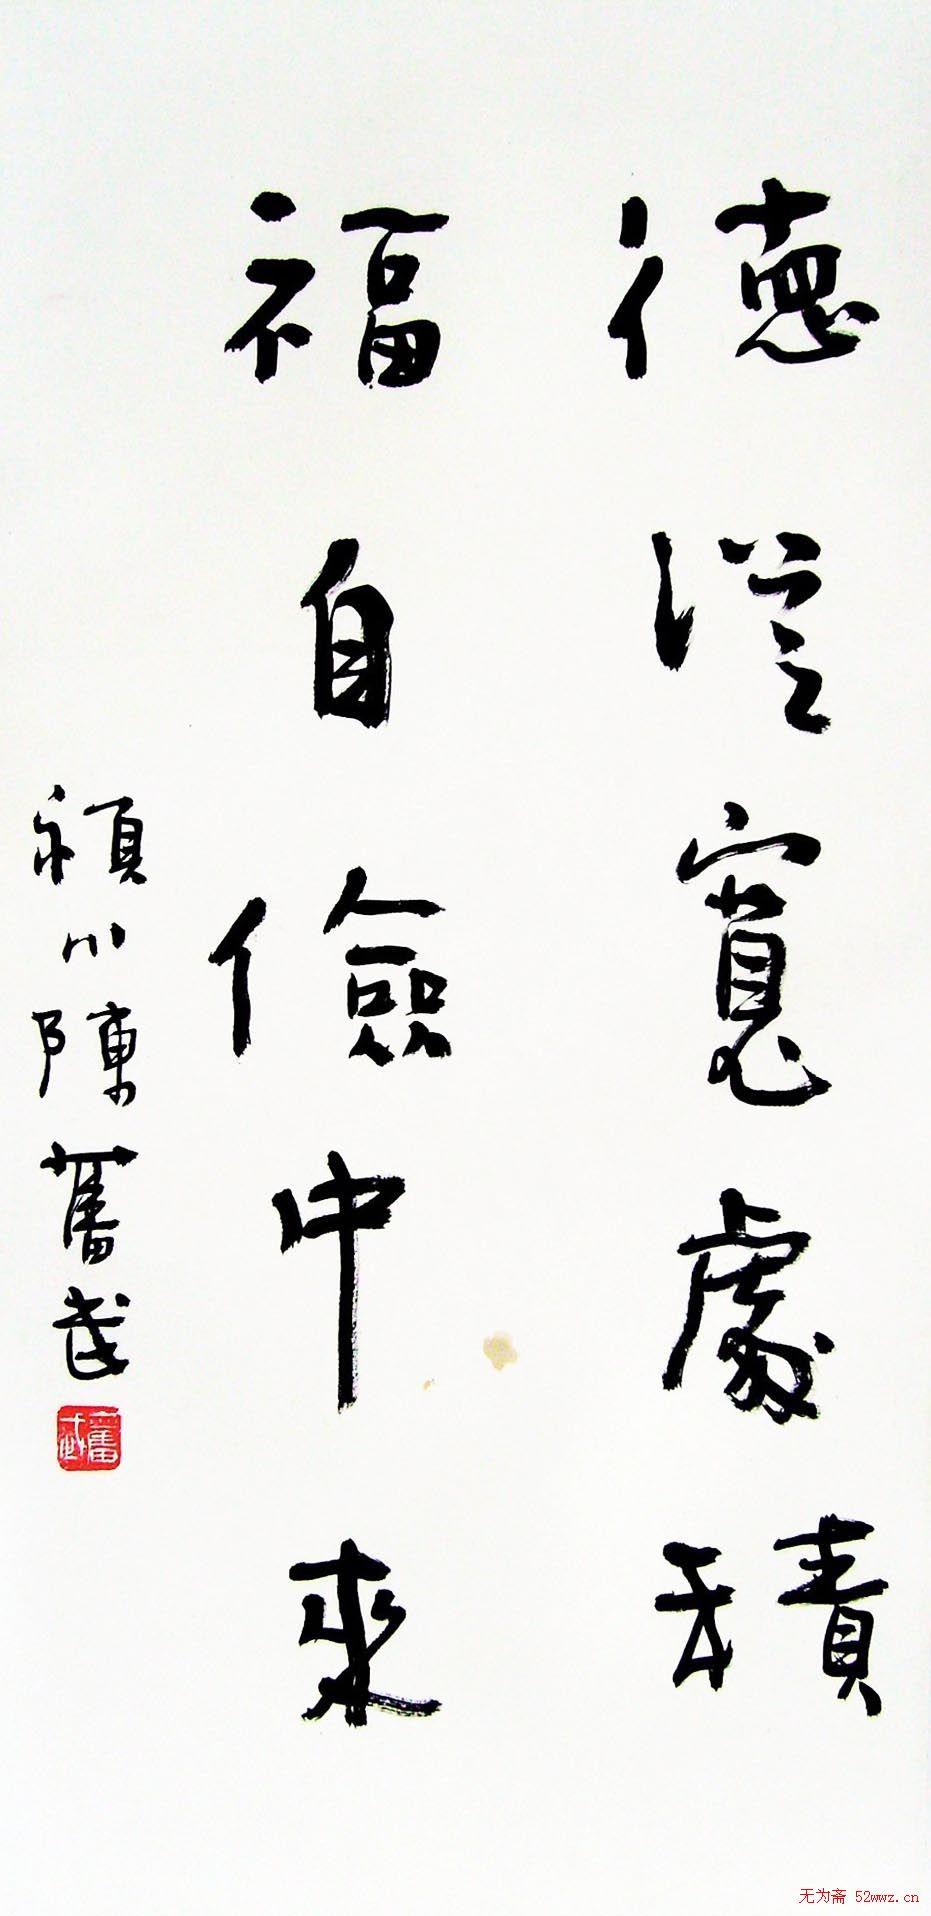 德從寬處積
福自儉中來
潁川陳舊武
舊武
无为斋 52wwz.cn